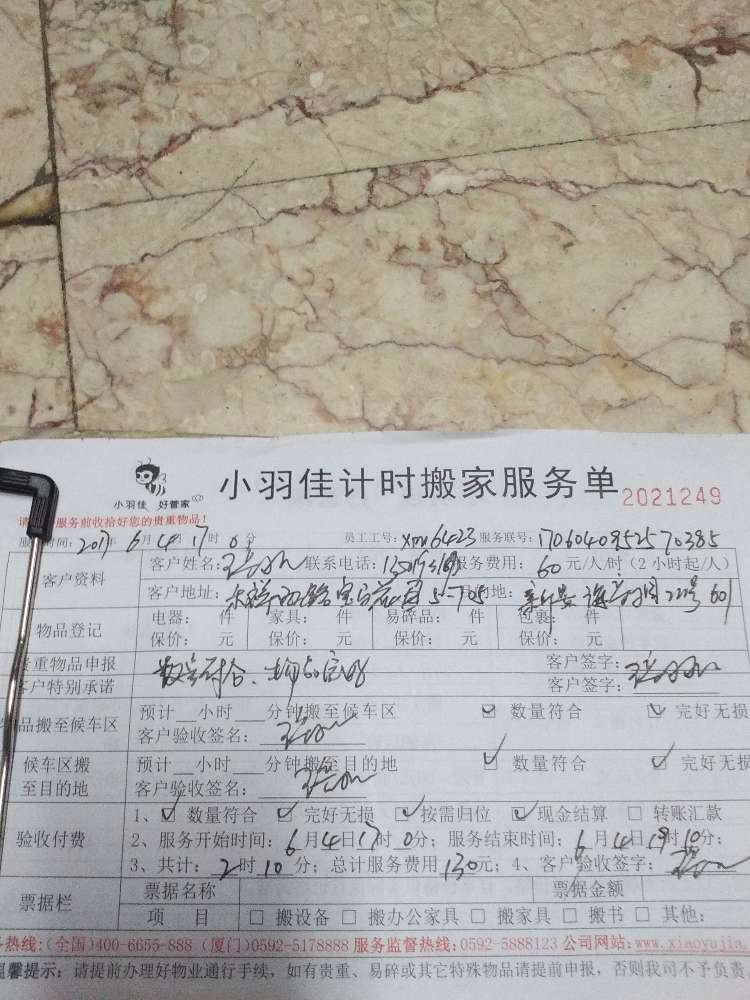 小羽佳 好管家
小羽佳计时搬家服务单 2021249
服务前收拾好您的贵重物品！
时间：2017年6月4日17时0分 员工工号：xm6423 服务联号：1706040952570385
客户资料 客户姓名： 联系电话： 服务费用：60元/人/时（2小时起/人）
客户地址： 5-705 的地： 22号601
物品登记 电器： 件 家具： 件 易碎品： 件 包裹： 件
保价： 元 保价： 元 保价： 元 保价： 元
贵重物品申报 数量符合、 客户签字：
客户特别承诺 客户签字：
品搬至候车区 预计__小时___分钟搬至候车区 ☑ 数量符合 ☑ 完好无损
客户验收签名：
候车区搬至目的地 预计__小时___分钟搬至目的地 ☑ 数量符合 ☑ 完好无损
客户验收签名：
验收付费 1、☑ 数量符合 ☑ 完好无损 ☑ 按需归位 ☑ 现金结算 □ 转账汇款
2、服务开始时间：6月4日17时0分；服务结束时间：6月4日19时10分；
3、共计：2时10分；总计服务费用130元；4、客户验收签字：
票据栏 票据名称 票据金额
项 目 □ 搬设备 □ 搬办公家具 □ 搬家具 □ 搬书 □ 其他：
务热线:(全国)400-6655-888 (厦门)0592-5178888 服务监督热线:0592-5888123 公司网站:www.xiaoyujia.
温馨提示：请提前办理好物业通行手续，如有贵重、易碎或其它特殊物品请提前申报，否则我司不予负责